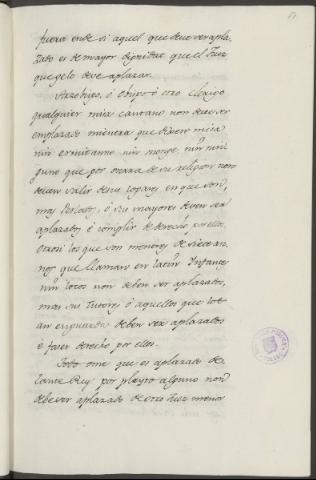 fuera ende si aquel que deue ser apla
zado es de mayor dignidat que el Juez
que gelo deue aplazar.
Arzobispo, ó Obispo ó otro Clerigo
qualquier misa cantano non deve ser
emplazado mientra que dixier misa
nin ermitanno nin monge, nin nin
guno que por otrara de su religion non
deuen salir de sus logares en que son,
mas Perlados, ó sus mayores deven ser
aplazados é complir de derecho por ellos
Otrosi los que son menores de siete an
nos que llaman en latin Infantes
nin locos non deben ser aplazados,
mas sus Tutores ó aquellos que los
an en guarda deben ser aplazados
é facer derecho por ellos.
Todo ome que es aplazado de
lante Rey por pleyto alguno non
debe ser aplazado de otro Juez menor